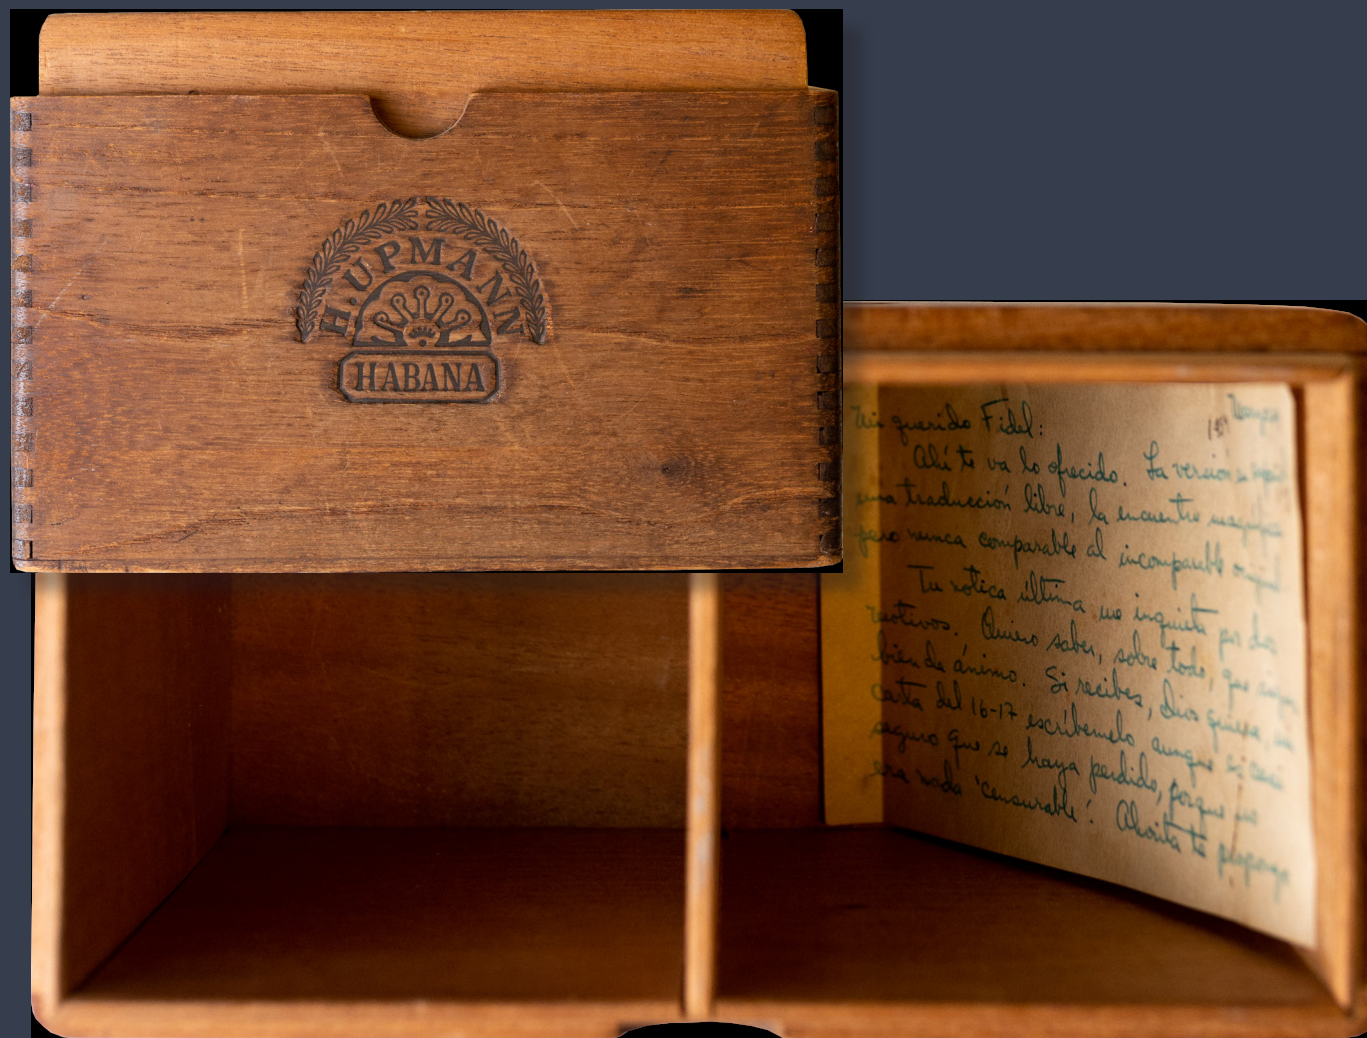 H. UPMANN
HABANA
Mi querido Fidel:
Ahí te va lo ofrecido. La versión
una traducción libre, la encuentro magnífica
pero nunca comparable al incomparable original
Tu notica última me inquieta por dos
motivos. Quiero saber, sobre todo, que sigues
bien de ánimo. Si recibes, Dios quiera, mi
carta del 16-17 escríbemelo aunque
seguro que se haya perdido, porque no
era nada 'censurable'. Ahorita te propongo